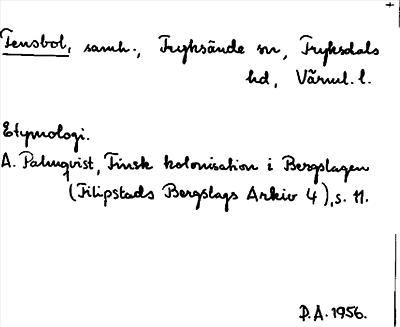 Tensbol, samh., Fryksände sn, Fryksdals
hd, Värml. l.
Etymologi.
A. Palmqvist, Finsk kolonisation i Bergslagen
(Filipstads Bergslags Arkiv 4), s. 11.
P.A. 1956.